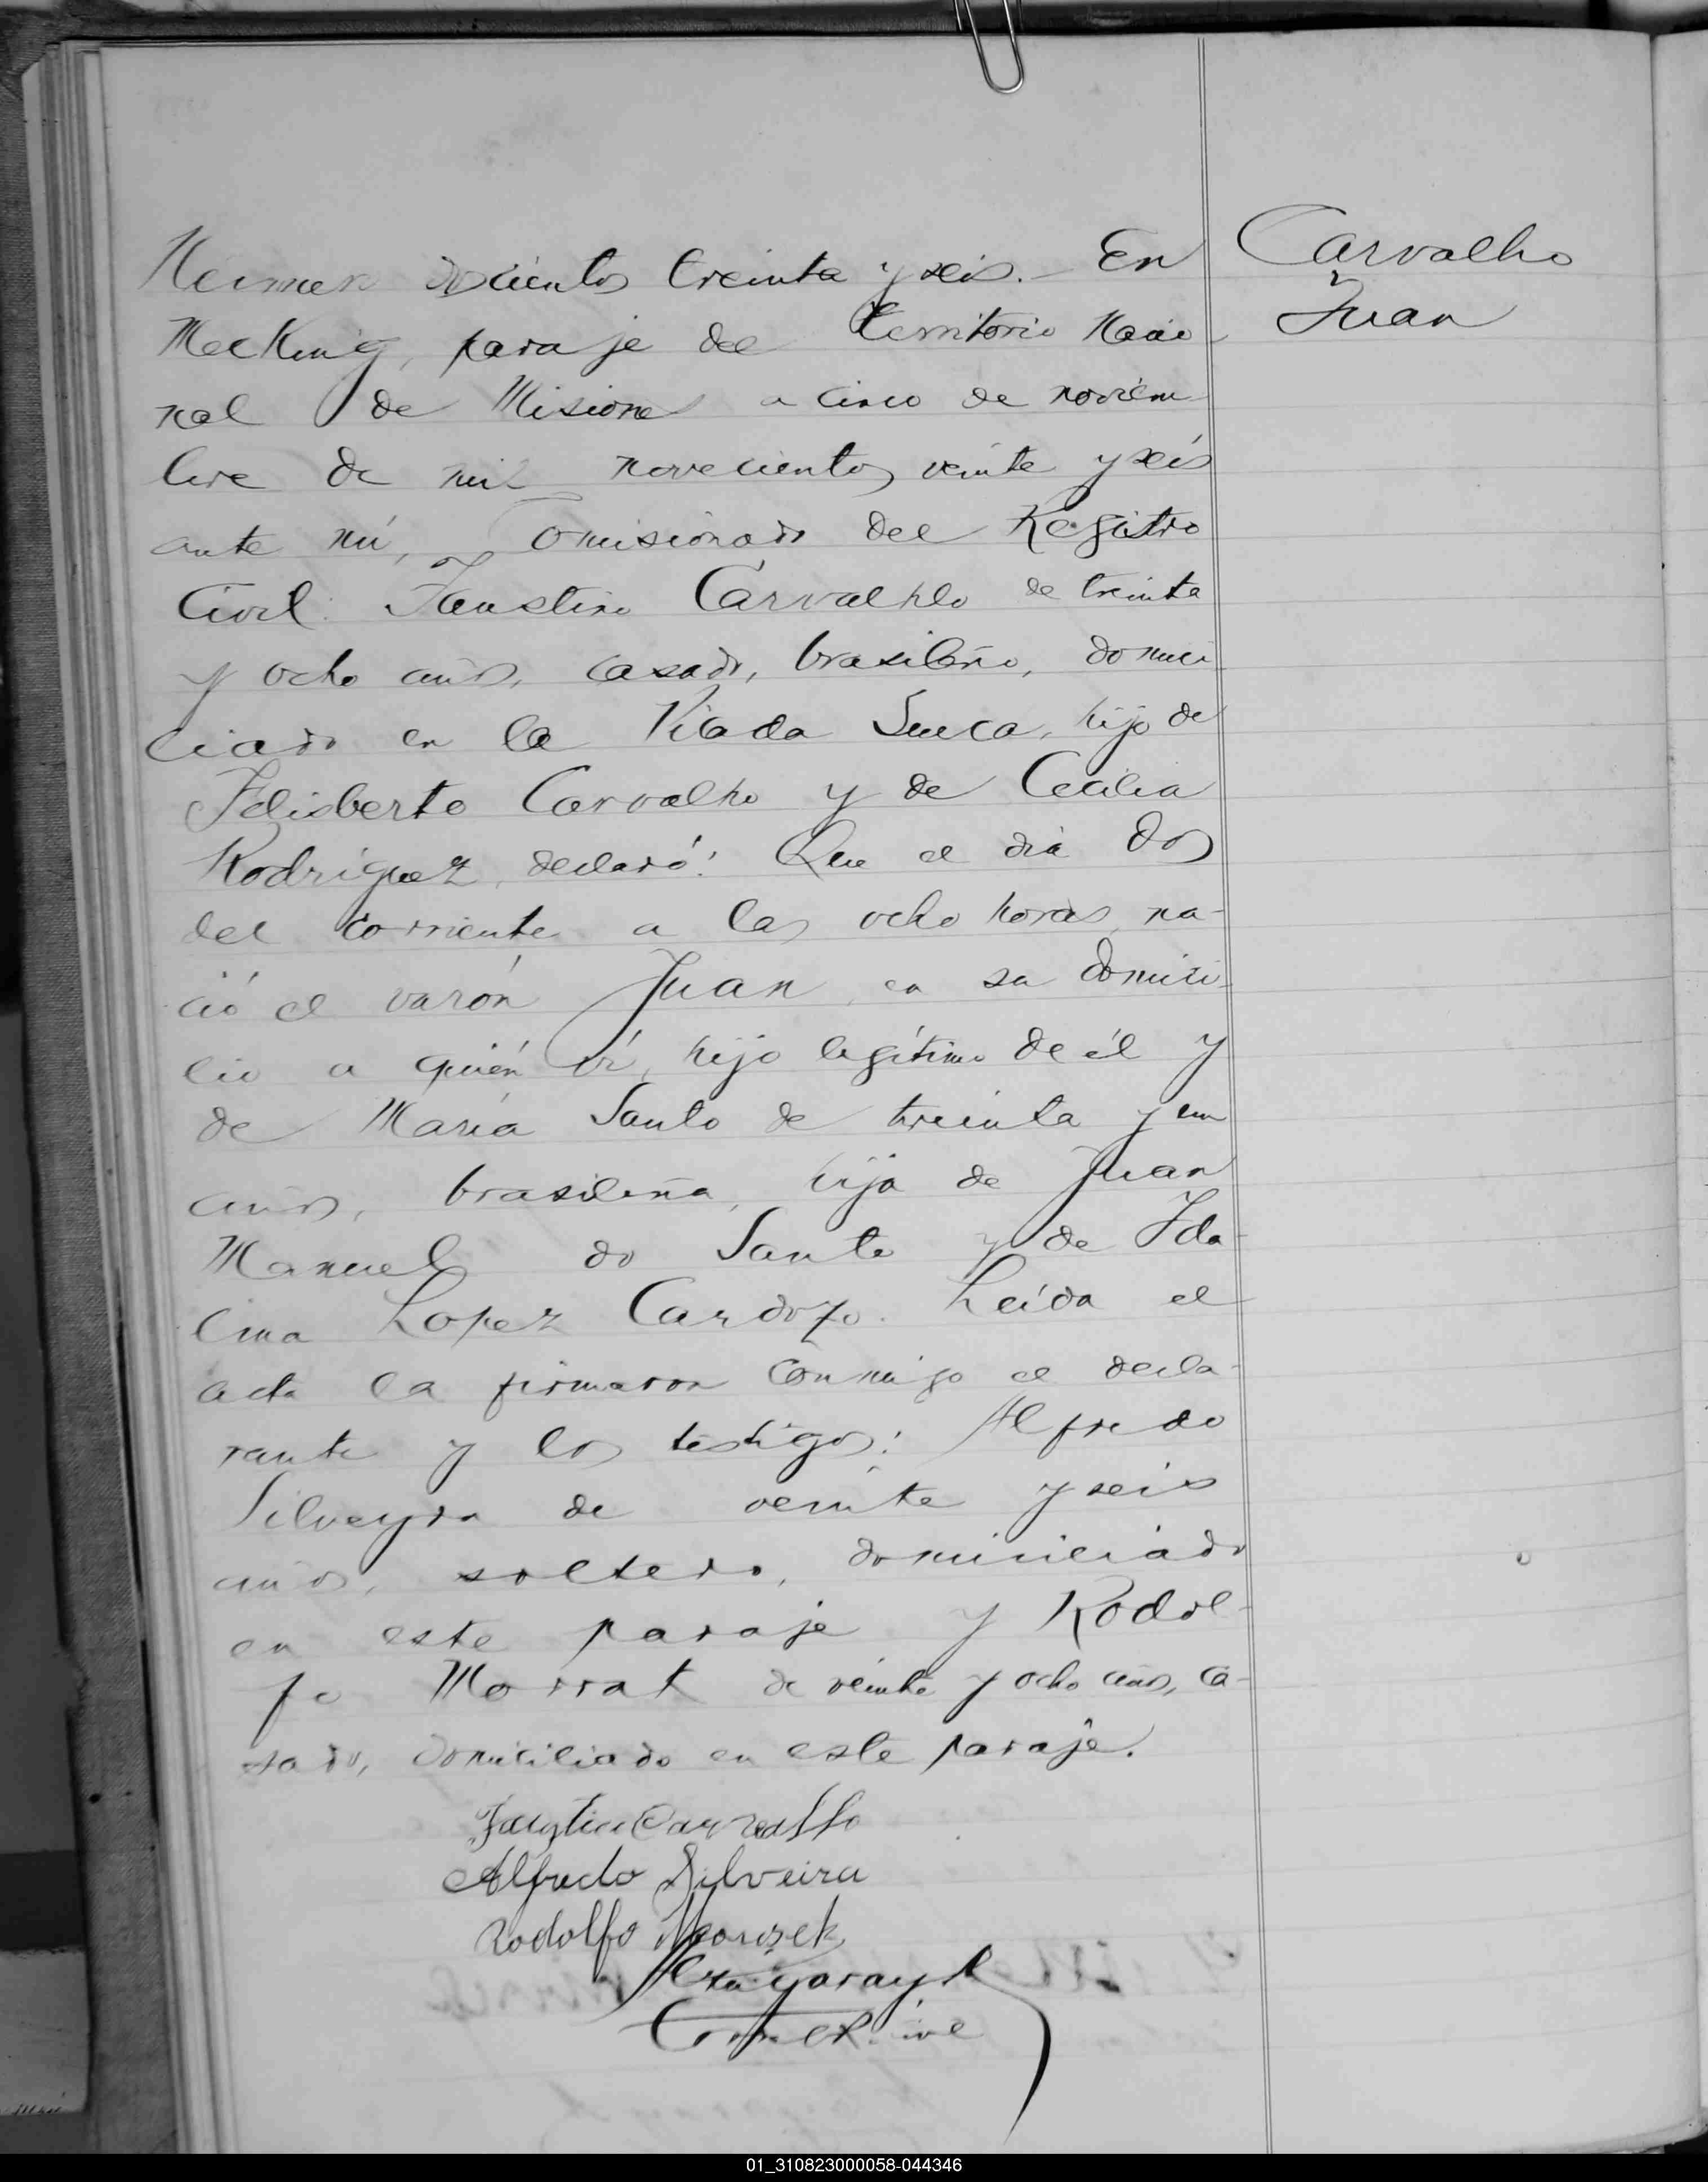 Carvalho
Juan
Número doscientos treinta y seis. - En
MecKing, paraje del Territorio Nacio-
nal de Misiones a cinco de noviem-
bre de mil novecientos veinte y seis
ante mí, Comisionado del Registro
Civil: Faustino Carvalhlo de treinta
y ocho años, casado, brasileño, domici-
liado en la Picada Sueca, hijo de
Felisberto Carvalho y de Cecilia
Rodríguez, declaró: Que el día dos
del corriente a las ocho horas, na-
ció el varón Juan, en su domici-
lio a quién ví, hijo legítimo de él y
de María Santo de treinta y un
años, brasileña, hija de Juan
Manuel do Santo y de Ida
lina Lopez Cardozo. Leída el
acta la firmaron conmigo el decla-
rante y los testigos: Alfredo
Silveyra de veinte y seis
años, soltero, domiciliado
en este paraje y Rodol-
fo Morrak de veinte y ocho años, ca-
sado, domiciliado en este paraje.
Faustino Carvalho
Alfredo Silveira
Rodolfo
01_310823000058-044346